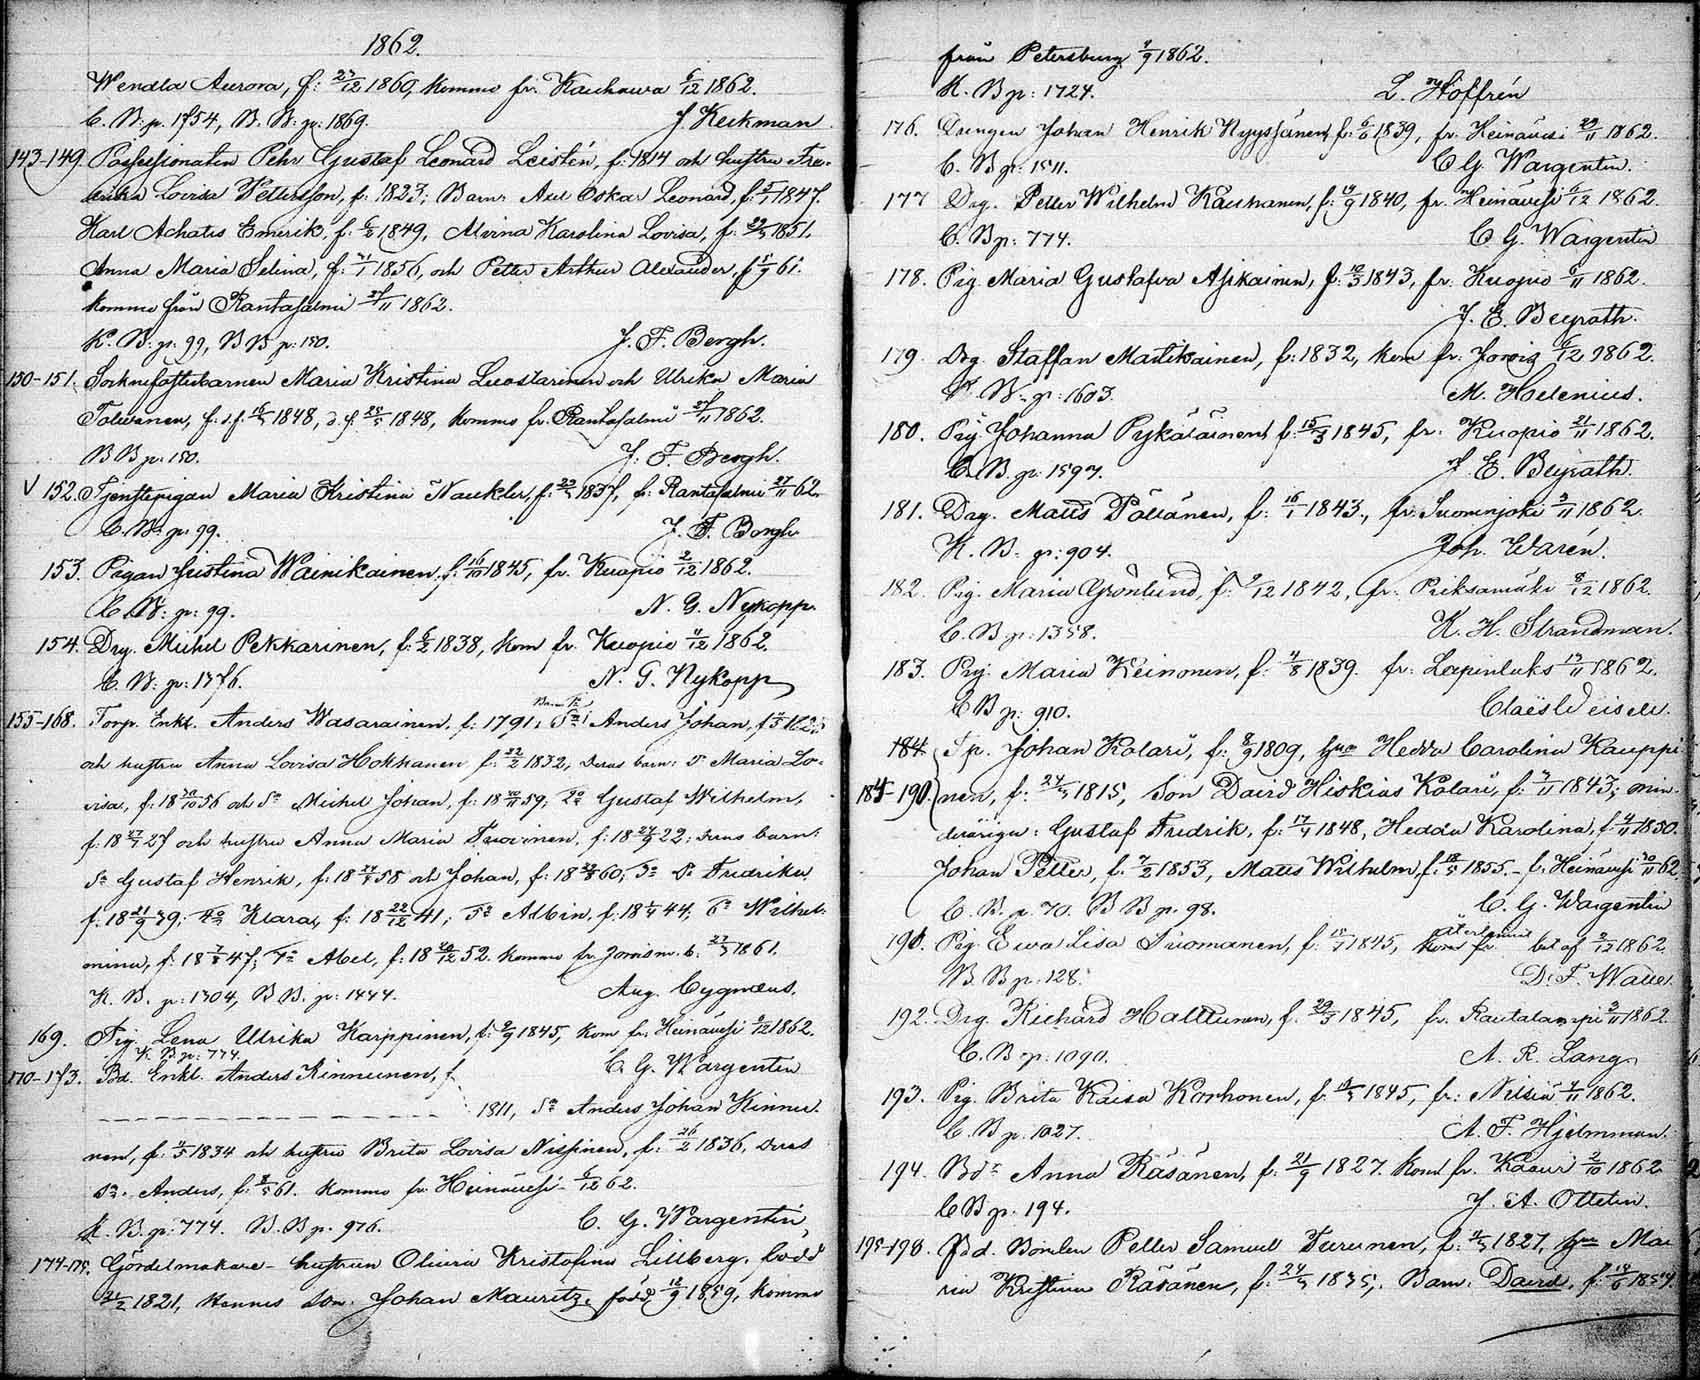 1862.
Wendla Aurora, f: 23/12 1860, komme fr. Kauhawa 6/12 1862.
C. B: p. 1754, B. B: p: 1869.
J Keckman
143-149. Possessionaten Pehr Gustaf Leonard Leistén, f: 1814 och hustru Fre-
drika Lovisa Pettersson, f: 1823; Barn: Axel Oskar Leonard, f: 5/1 1847.
Karl Achates Emerik, f: 6/2 1849, Alvina Karolina Lovisa, f: 1851.
Anna Maria Selina, f: 21/1 1856, och Petter Arthur Alexander, f 1/9 61.
komme från Rantasalmi 27/11 1862.
K. B: p: 99, B B p: 150.
J. F. Bergh.
150-151. Socknefattibarnen Maria Kristina Luostarinen och Ulrika Maria
Tolwanen, f: d. f. 1848, d. f. 1848, komme fr. Rantasalmi 27/11 1862.
B B p: 150.
J. F. Bergh.
V 152. Tjenstepigan Maria Kristina Naukler, f: 1837, fr. Rantasalmi 27/11 62.
C. B: p: 99.
J. F. Bergh
153. Pigan Justina Wainikainen, f: 16/10 1845, fr. Kuopio 2/12 1862.
C. B: p: 99.
N. G. Nykopp
154. Drg. Mickel Pekkarinen, f: 6/2 1838, kom fr. Kuopio 4/12 1862.
C. B: p: 1376.
N. G. Nykopp
155-168. Torp. Enkl. Anders Wasarainen, f: 1791, Sn: Anders Johan, f
och hustru Anna Lovisa Hokkanen f: 22/2 1832, deras barn: Dr Maria Lo-
visa, f: 18 30/10 56 och Sn Mickel Johan, f: 18 59; 2n Gustaf Wilhelm,
f: 18 27 och hustru Anna Maria Tuovinen, f: 18 22; deras barn:
Sn Gustaf Henrik, f: 18 58 och Johan, f: 18 60; 3n Dr Fredrika
f. 18 21/9 39; 4n Klara, f: 18 22/12 41; 5n Albin, f: 18 44; 6n Wilhel-
mina, f: 18 47; 7n Abel, f: 18 52. komme fr. Jorois m. b. 1861.
K. B. p: 1304, B B. p: 1444.
Aug. Cygnæus.
169. Pig. Lena Ulrika Karppinen, f: 2/9 1845, kom fr. Heinävesi 6/12 1862.
K. B p: 774.
C. G. Wargentin
170-173. Bd. Enkl. Anders Kinnunen, f.
1811, Sn Anders Johan Kinnu-
nen, f: 1834 och hustru Brita Lovisa Nissinen, f: 26/2 1836, deras
sn. Anders, f: 61. komme fr. Heinävesi 6/12 62.
K. B. p: 774. B. B p. 976.
C. G. Wargentin
174-175. Gördelmakare-hustrun Olivia Kristofina Lillberg, född
21/2 1821, Hennes son Johan Mauritz, född 12/9 1859, komme
från Petersburg 4/9 1862.
K. B p: 1724.
L. Hoffrén
176. Drengen Johan Henrik Nyyssänen, f: 6/6 1839, fr. Heinävesi 29/11 1862.
C. B p: 1511.
C G. Wargentin.
177 Drg. Petter Wilhelm Kauhanen, f: 19/9 1840, fr. Heinävesi 6/12 1862.
C. B p: 774.
C G. Wargentin
178. Pig. Maria Gustafva Asikainen, f: 10/3 1843, fr. Kuopio 6/11 1862.
J. E. Beyrath.
179. Drg. Staffan Matikainen, f: 1832, kom fr. Jorois 6/12 1862.
K. B. p: 1603.
M. Helenius.
180. Pig Johanna Pykäläinen, f: 15/3 1845, fr. Kuopio 21/11 1862.
C. B. p: 1597.
J E. Beyrath.
181. Drg. Matts Pöllänen, f: 16/1 1843, fr. Suonnejoki 3/11 1862.
K. B: p: 904.
Joh. Warén.
182. Pig. Maria Grönlund, f: 9/12 1842, fr. Pieksamäki 8/12 1862.
C. B p: 1358.
K. H. Strandman.
183. Pig. Maria Keinonen, f: 4/8 1839. fr: Lapinlaks 13/11 1862.
C B p: 910.
184 Sp. Johan Kolari, f: 8/9 1809, hu Hedda Carolina Kauppi-
185-190. nen, f: 1815, Son David Hiskias Kolari, f: 1843; min-
deråriga: Gustaf Fredrik, f: 1848, Hedda Karolina, f: 1850.
Johan Petter, f: 1853, Matts Wilhelm, f: 1855. - fr. Heinävesi 30/11 62.
C. B. p. 70. B B p. 98.
C. G. Wargentin
191. Pig. Ewa Lisa Tuomanen, f: 1845, återlemnat bet af 2/12 1862
B. B p. 128.
192. Drg. Rickard Halttunen, f: 29/3 1845, fr. Rautalampi 3/11 1862.
C. B p: 1090.
A. R. Lang
193. Pig. Brita Kaisa Korhonen, f: 1845, fr: Nilsiä 4/11 1862.
C. B p: 1027.
A. F. Hjelmman.
194. Bd Anna Räsänen, f: 21/9 1827. kom fr. Kaavi 2/10 1862.
C B p. 194.
J. A. Ottelin.
195-198. Bd. Bonden Petter Samuel Turunen, f: 1827, hu Ma-
ria Kristina Räsänen, f: 1835, Barn: David, f: 1857.